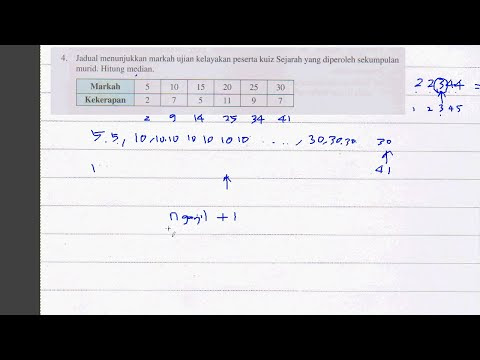 4. Jadual menunjukkan markah ujian kelayakan peserta kuiz Sejarah yang diperoleh sekumpulan
murid. Hitung median.
Markah 5 10 15 20 25 30
Kekerapan 2 7 5 11 9 7
2 9 14 25 34 41
2 2 3 4 4 =
1 2 3 4 5
5.5, 10,10.10 10 10 10 10 ...., 30,30.30 30
1 41
n ganjil + 1